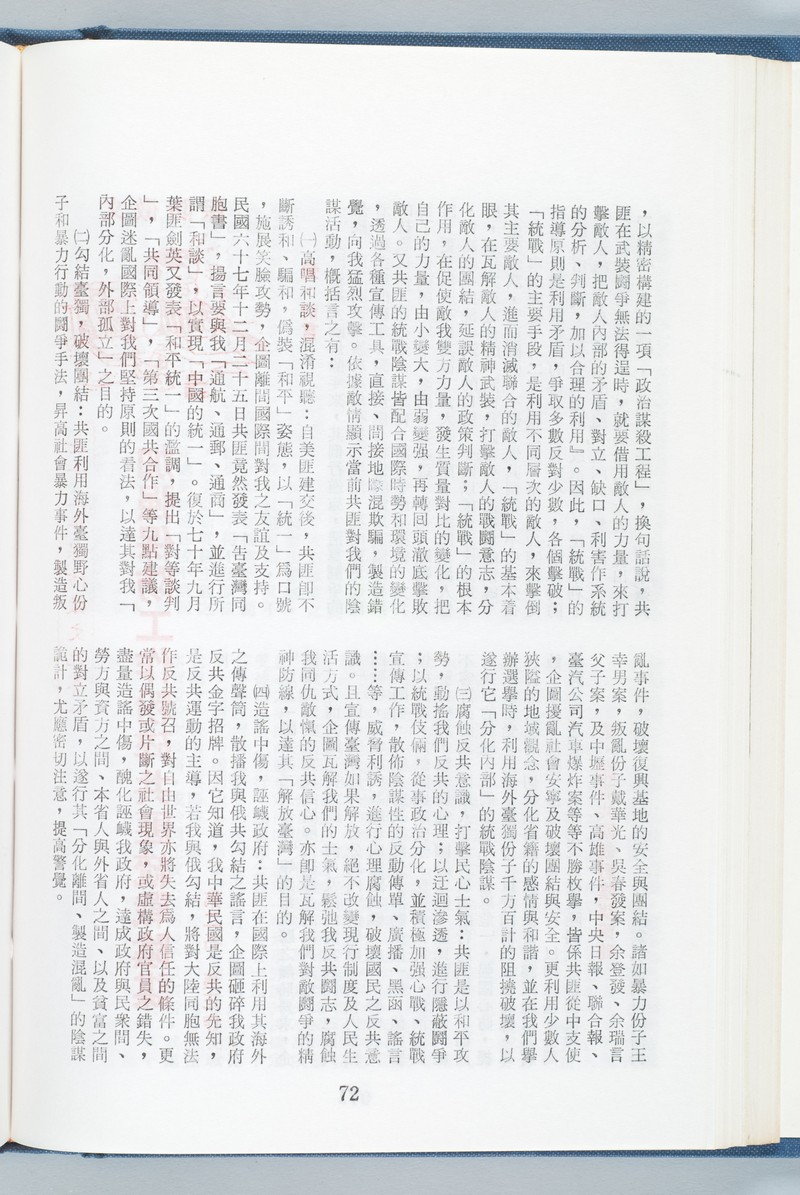 ，以精密構建的一項「政治謀殺工程」，換句話說，共
匪在武裝鬪爭無法得逞時，就要借用敵人的力量，來打
擊敵人，把敵人內部的矛盾、對立、缺口、利害作系統
的分析、判斷，加以合理的利用』。因此，「統戰」的
指導原則是利用矛盾，爭取多數反對少數，各個擊破；
「統戰」的主要手段，是利用不同層次的敵人，來擊倒
其主要敵人，進而消滅聯合的敵人，「統戰」的基本着
眼，在瓦解敵人的精神武裝，打擊敵人的戰鬪意志，分
化敵人的團結，延誤敵人的政策判斷；「統戰」的根本
作用，在促使敵我雙方力量，發生質量對比的變化，把
自己的力量，由小變大，由弱變强，再轉回頭澈底擊敗
敵人。又共匪的統戰陰謀皆配合國際時勢和環境的變化
，透過各種宣傳工具，直接、間接地矇混欺騙，製造錯
覺，向我猛烈攻擊。依據敵情顯示當前共匪對我們的陰
謀活動，概括言之有：
㈠高唱和談，混淆視聽：自美匪建交後，共匪卽不
斷誘和、騙和，僞裝「和平」姿態，以「統一」爲口號
，施展笑臉攻勢，企圖離間國際間對我之友誼及支持。
民國六十七年十二月二十五日共匪竟然發表「告臺灣同
胞書」，揚言要與我「通航、通郵、通商」，並進行所
謂「和談」，以實現「中國的統一」。復於七十年九月
葉匪劍英又發表「和平統一」的濫調，提出「對等談判
」，「共同領導」，「第三次國共合作」等九點建議，
企圖迷亂國際上對我們堅持原則的看法，以達其對我「
內部分化，外部孤立」之目的。
㈡勾結臺獨，破壞團結：共匪利用海外臺獨野心份
子和暴力行動的鬪爭手法，昇高社會暴力事件，製造叛
亂事件，破壞復興基地的安全與團結。諸如暴力份子王
幸男案，叛亂份子戴華光、吳春發案，余登發、余瑞言
父子案，及中壢事件、高雄事件，中央日報、聯合報、
臺汽公司汽車爆炸案等等不勝枚擧，皆係共匪從中支使
，企圖擾亂社會安寧及破壞團結與安全。更利用少數人
狹隘的地域觀念，分化省籍的感情與和諧，並在我們擧
辦選擧時，利用海外臺獨份子千方百計的阻撓破壞，以
遂行它「分化內部」的統戰陰謀。
㈢腐蝕反共意識，打擊民心士氣：共匪是以和平攻
勢，動搖我們反共的心理；以迂迴滲透，進行隱蔽鬪爭
；以統戰伎倆，從事政治分化，並積極加强心戰、統戰
宣傳工作，散佈陰謀性的反動傳單、廣播、黑函、謠言
……等，威脅利誘，進行心理腐蝕，破壞國民之反共意
識。且宣傳臺灣如果解放，絕不改變現行制度及人民生
活方式，企圖瓦解我們的士氣，鬆弛我反共鬪志，腐蝕
我同仇敵愾的反共信心。亦卽是瓦解我們對敵鬪爭的精
神防線，以達其「解放臺灣」的目的。
㈣造謠中傷，誣衊政府：共匪在國際上利用其海外
之傳聲筒，散播我與俄共勾結之謠言，企圖砸碎我政府
反共金字招牌。因它知道，我中華民國是反共的先知，
是反共運動的主導，若我與俄勾結，將對大陸同胞無法
作反共號召，對自由世界亦將失去爲人信任的條件。更
常以偶發或片斷之社會現象，或虛構政府官員之錯失，
盡量造謠中傷，醜化誣衊我政府，達成政府與民衆間、
勞方與資方之間、本省人與外省人之間、以及貧富之間
的對立矛盾，以遂行其「分化離間、製造混亂」的陰謀
詭計，尤應密切注意，提高警覺。
72